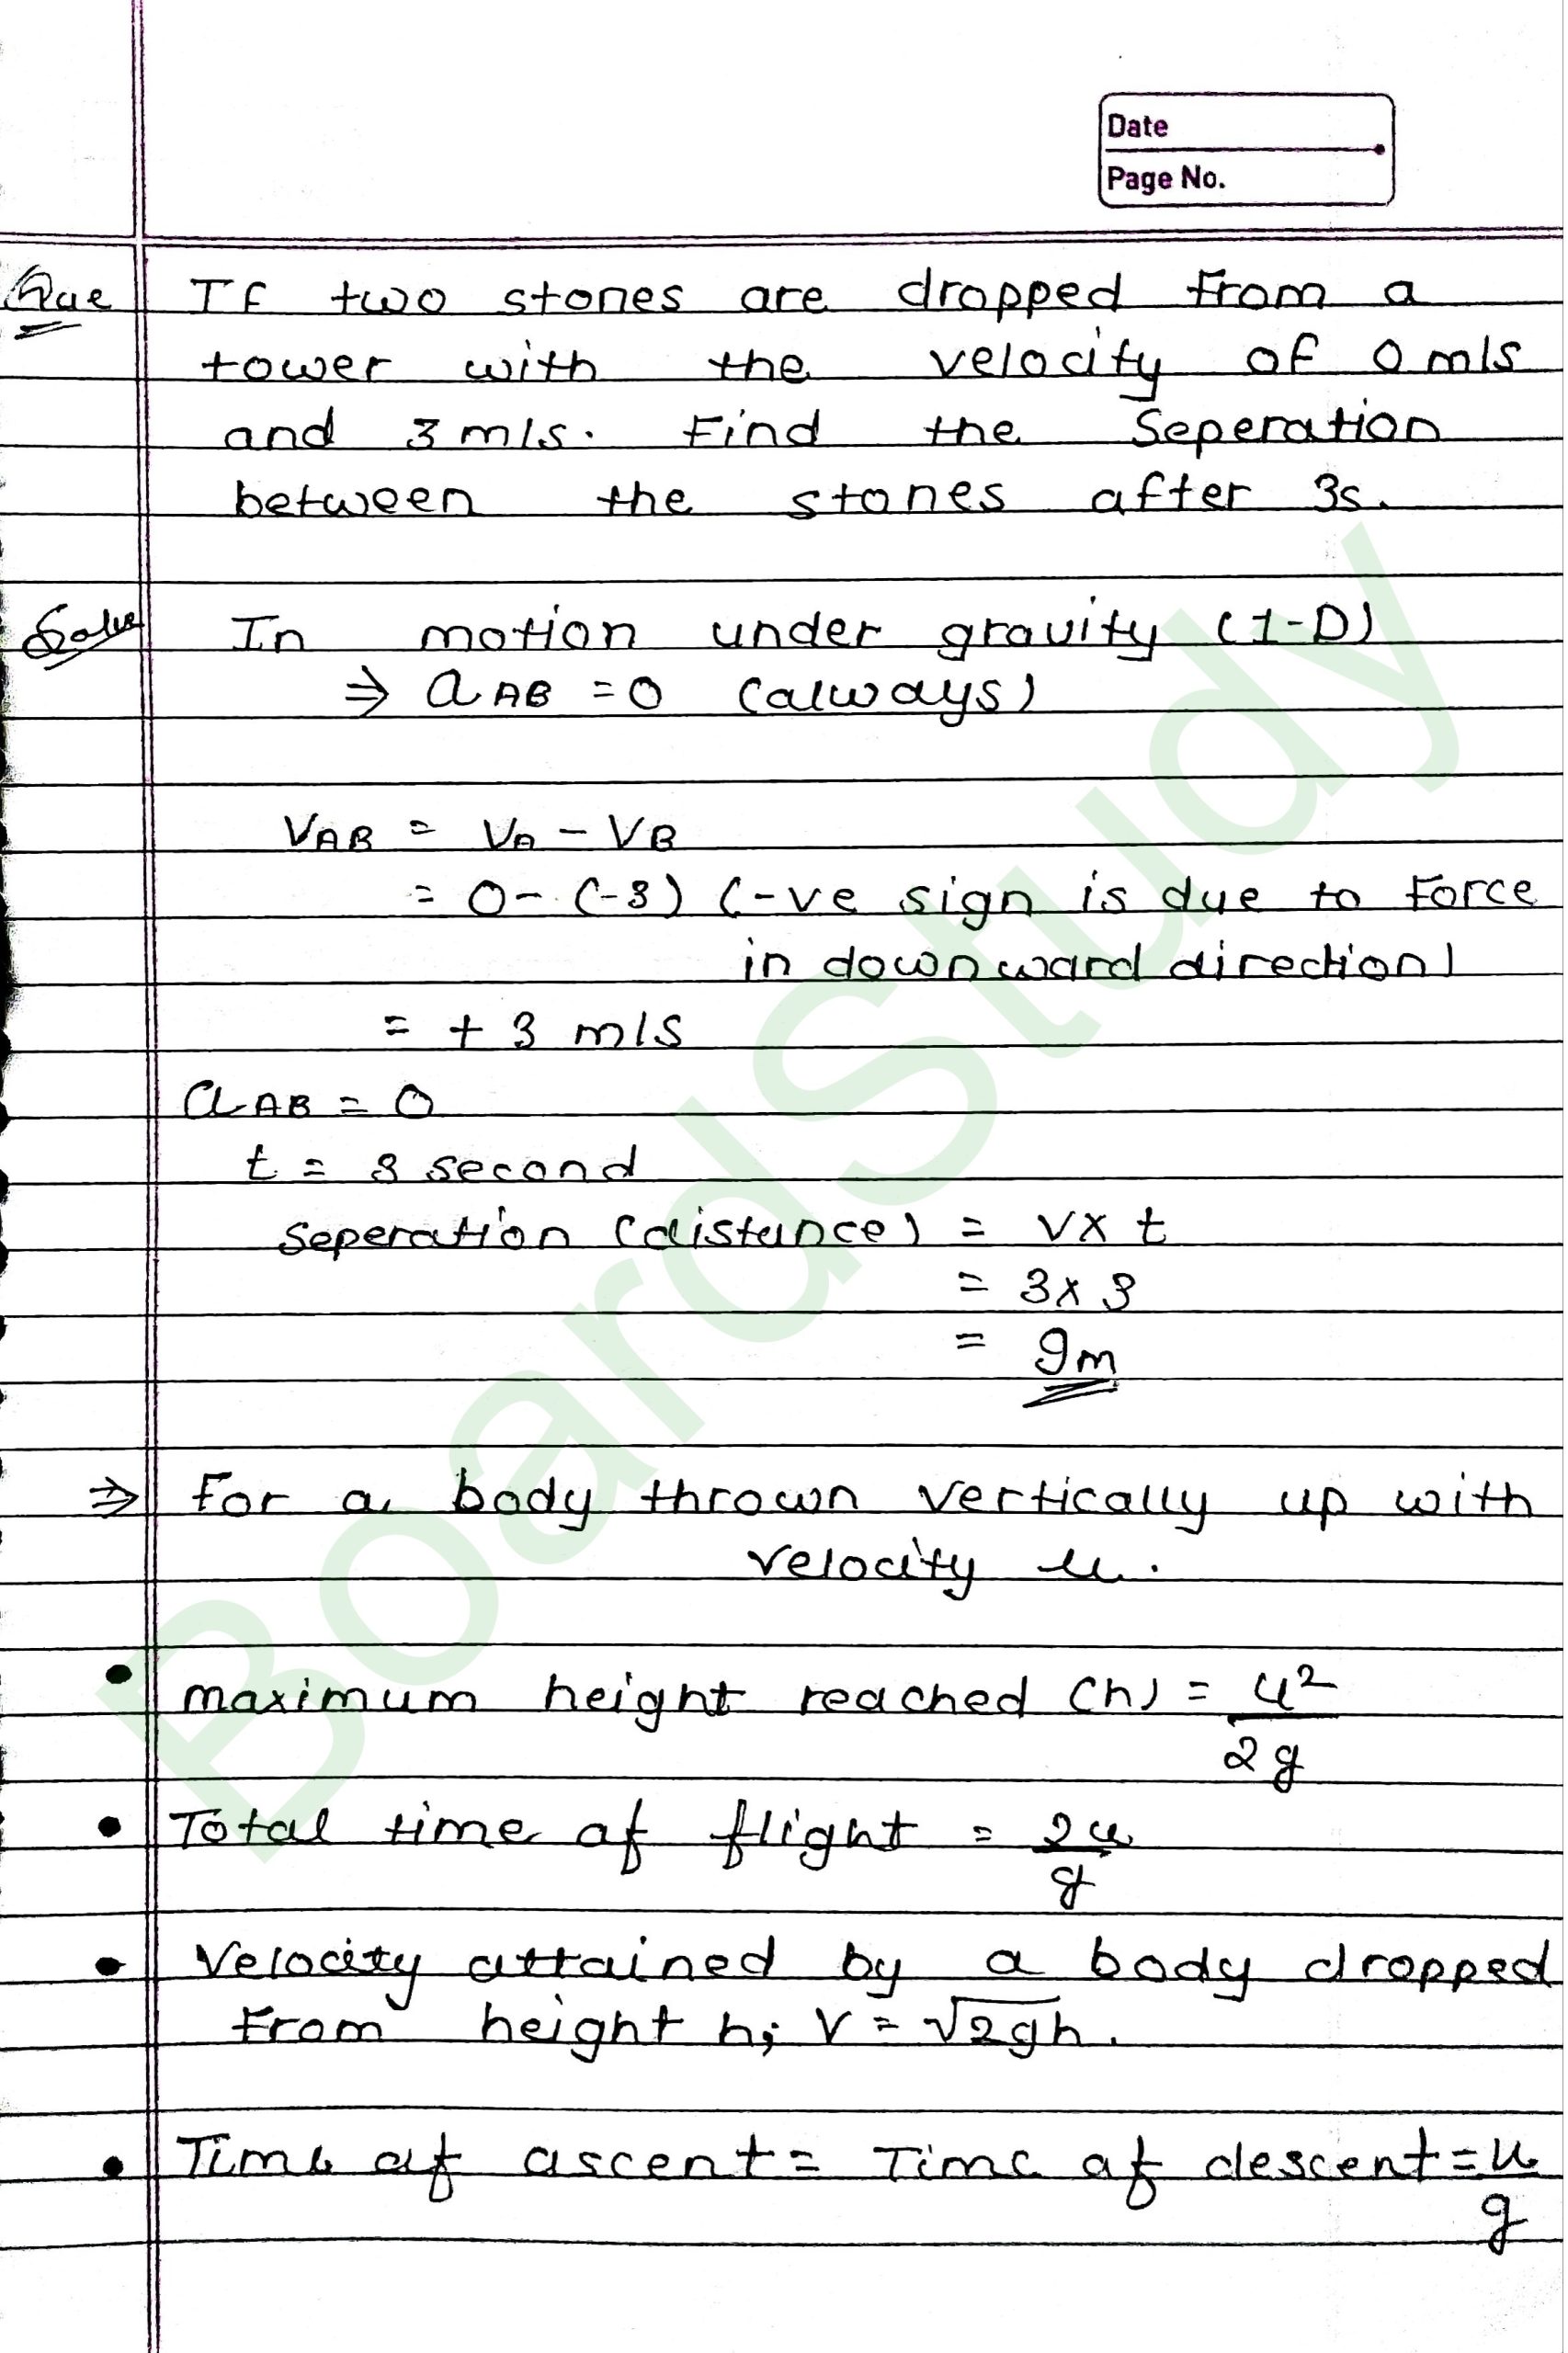 Date
Page No.
Que If two stones are dropped from a
tower with the velocity of 0 m/s
and 3 m/s. Find the Seperation
between the stones after 3s.
Solve In motion under gravity (1-D)
⇒ a AB = 0 (always)
VAB = VA - VB
= 0 - (-3) (-ve sign is due to force
in downward direction)
= + 3 m/s
a AB = 0
t = 3 second
Seperation (distance) = V x t
= 3 x 3
= 9m
⇒ For a body thrown vertically up with
velocity u.
• maximum height reached (h) = u²
2g
• Total time of flight = 2u
g
• Velocity attained by a body dropped
from height h; V = √2gh.
• Time of ascent = Time of descent = u
g
BoardStudy